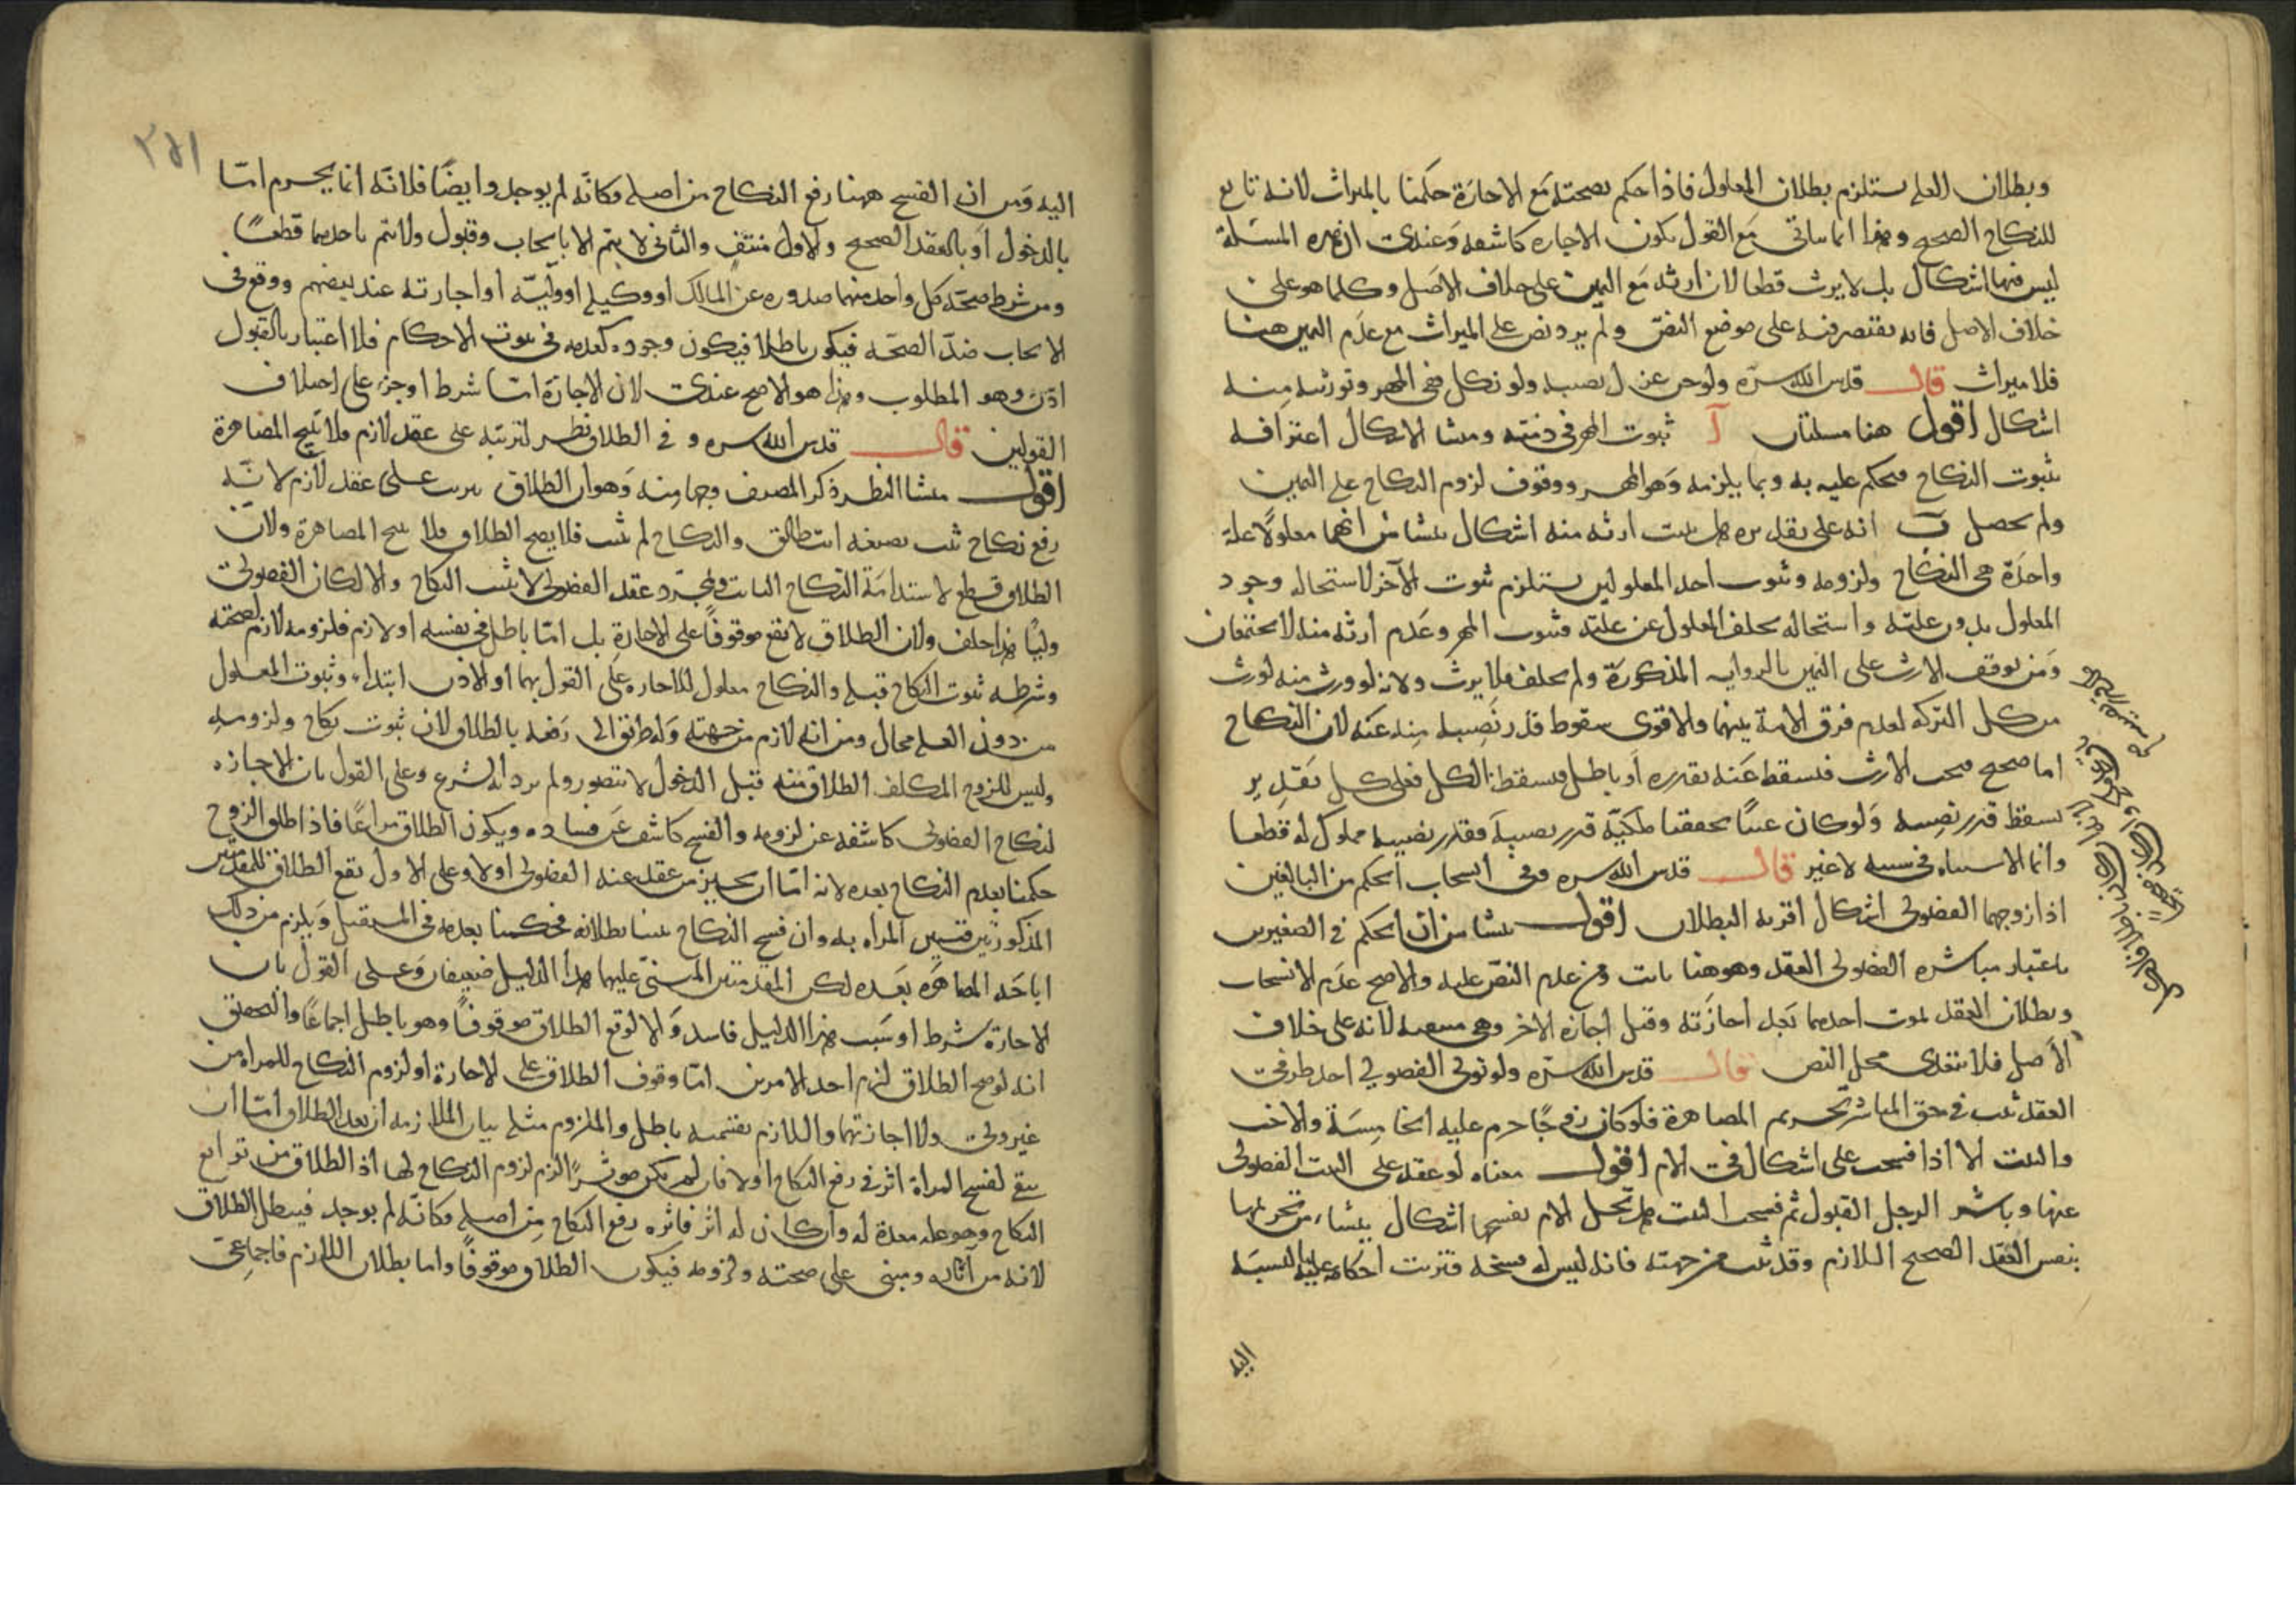 وبطلان العلة يستلزم بطلان المعلول فاذا حكم بصحته مع الاجازة حكمنا بالميراث لانه تابع
للنكاح الصحيح وهذا انما يتأتى مع القول بكون الاجازه كاشفه وعندى ان هذه المسئلة
ليس فيها اشكال بل لا يرث قطعا لان ارثه مع اليمين على خلاف الاصل وكلما هو على
خلاف الاصل فانه يقتصر فيه على موضع النص ولم يرد نص على الميراث مع عدم اليمين هنا
فلا ميراث قال قدس الله سره ولو جن عزل نصيبه ولو نكل ففى المهر وتوريثه منه
اشكال اقول هنا مسئلتان آ ثبوت المهر فى ذمته ومنشا الاشكال اعترافه
بثبوت النكاح فيحكم عليه به وبما يلزمه وهو المهر ووقوف لزوم النكاح على اليمين
ولم يحصل ب انه على تقديره هل يثبت ارثه منه اشكال ينشا من انهما معلولا علة
واحدة هى النكاح ولزومه وثبوت احد المعلولين يستلزم ثبوت الآخر لاستحاله وجود
المعلول بدون علته واستحاله تخلف المعلول عن علته فثبوت المهر وعدم ارثه منه لا يجتمعان
ومن توقف الارث على اليمين بالروايه المذكورة ولم يحلف فلا يرث ولانه لو ورث منه لورث
من كل التركه لعدم فرق الامة بينهما والاقوى سقوط قدر نصيبه منه عنه لان النكاح
اما صحيح فيجب الارث فيسقط عنه بقدره أو باطل فيسقط الكل فعلى كل تقدير
يسقط قدر نصيبه ولو كان عينا تحققنا ملكية قدر نصيبه فقدر نصيبه مملوك له قطعا
وانما الاشتباه فى سببه لا غير قال قدس الله سره وفى انسحاب الحكم من البالغين
اذا زوجهما الفضولى اشكال اقربه البطلان اقول ينشا من ان الحكم فى الصغيرين
باعتبار مباشره الفضولى العقد وهو هنا ثابت ومن عدم النص عليه والاصح عدم الانسحاب
وبطلان العقد لموت احدهما بعد اجازته وقبل اجازة الاخر وهى لانه على خلاف
الاصل فلا يتعدى محل النص قال قدس الله سره ولو تولى الفضولي احد طرفى
العقد ثبت فى حق المباشر تحريم المصاهرة فلو كان زوجًا حرم عليه الخامسة والاخت
والبنت الا اذا فسخت على اشكال فى الام اقول معناه لو عقد على البنت الفضولى
عنها وباشر الرجل القبول ثم فسخت البنت هل تحل الام بفسخها اشكال ينشاء من تحريمها
بنفس العقد الصحيح اللازم وقد ثبت من جهته فانه ليس له فسخه فترتبت احكامه عليه بالنسبة
اليه
٢٥١
اليه ومن ان الفسخ ههنا رفع النكاح من اصله فكانه لم يوجد وايضًا فلانه انما يحرم امّا
بالدخول او بالعقد الصحيح والاول منتف والثانى لا يتم الا بايجاب وقبول ولا يتم باحدهما قطعًا
ومن شرط صحة كل واحد منهما صدوره عن المالك او وكيله او وليّه او اجازته عند بعضهم ووقع فى
الايجاب ضدّ الصحّه فيكون باطلا فيكون وجوده كعدمه فى ثبوت الاحكام فلا اعتبار بالقبول
اذن وهو المطلوب وهذا هو الاصح عندى لان الاجازة امّا شرط او جزء على اختلاف
القولين قال قدس الله سره و فى الطلاق نظر لترتبه على عقد لازم فلا يبيح المصاهرة
اقول منشا النظر ذكر المصنف وجها منه وهو ان الطلاق يترتب على عقد لازم لانّه
رفع نكاح ثبت بصيغه انت طالق والنكاح لم يثبت فلا يصح الطلاق فلا يبيح المصاهرة ولان
الطلاق قطع لاستدامة النكاح الثابت ومجرد عقد الفضولى لا يثبت النكاح والا لكان الفضولى
وليًا هذا خلف ولان الطلاق لا يقع موقوفًا على الاجازة بل امّا باطل فى نفسه او لازم فلزومه لازم لصحته
وشرطه ثبوت النكاح قبله والنكاح معلول للاجازه على القول بها او الاذن ابتداء وثبوت المعلول
من دون العلة محال ومن انه لازم من جهته وله طريق الى رفعه بالطلاق لان ثبوت نكاح ولزومه
وليس للزوج المكلف الطلاق منه قبل الدخول لا يتصور ولم يرد به الشرع وعلى القول بان الاجازه
لنكاح الفضولى كاشفه عن لزومه والفسخ كاشف عن فساده ويكون الطلاق مراعًا فاذا طلق الزوج
حكمنا بعدم النكاح بعده لانه امّا ان يجيز من عقد عنه الفضولى اولا وعلى الاول يقع الطلاق للمقدمتين
المذكورتين فتبين المرأه به وان فسخ النكاح تبينا بطلانه فحكمنا بعدمه فى المستقبل ويلزم من ذلك
اباحه المصاهره بعده لكن المقدمتين المبنى عليهما هذا الدليل ضعيفان وعلى القول بان
الاجازة شرط او سبب هذا الدليل فاسد والا لوقع الطلاق موقوفًا وهو باطل اجماعًا والتحقيق
انه لو صح الطلاق لزم احد الامرين امّا وقوف الطلاق على الاجازة او لزوم النكاح للمرأه من
غير ولى ولا اجازتها واللازم بقسميه باطل والملزوم مثله بيان الملازمه ان بعد الطلاق امّا ان
يبقى لفسخ المرأة اثر فى رفع النكاح اولا فان لم يكن مؤثرًا لزم لزوم النكاح لها اذ الطلاق من توابع
النكاح وهو عله معدة له وان كان له اثر فاثره رفع النكاح من اصله فكانّه لم يوجد فيبطل الطلاق
لانه من آثاره ومبنى على صحته ولزومه فيكون الطلاق موقوفًا واما بطلان اللازم فاجماعى